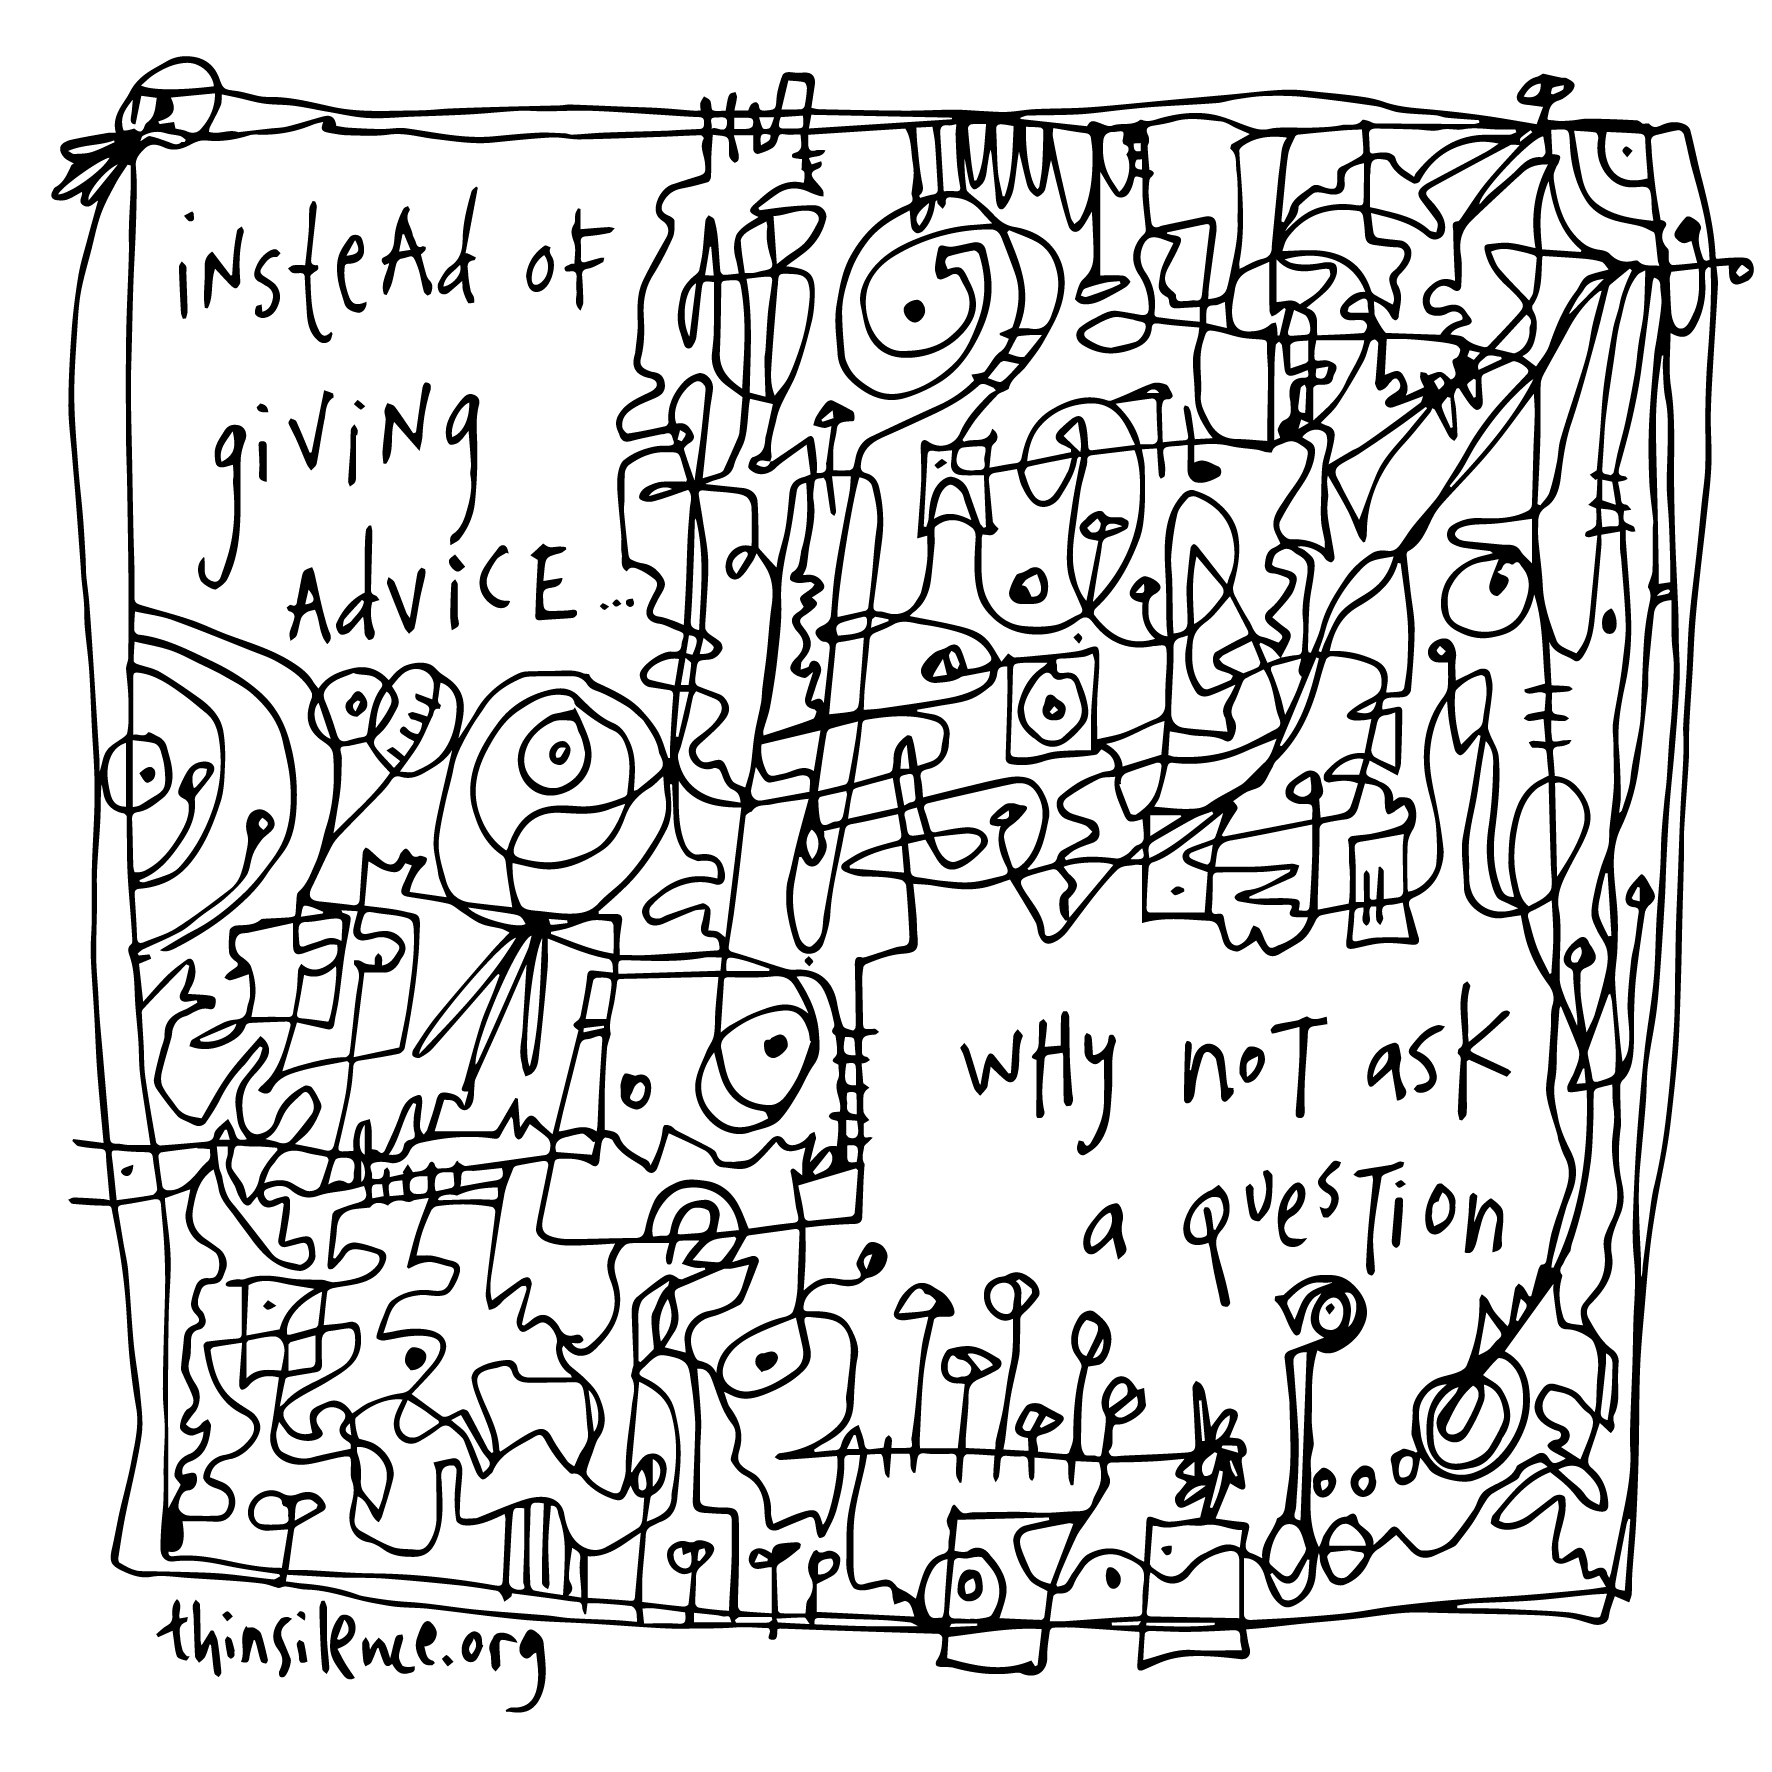 instead of
giving
advice...
why not ask
a question
thinsilence.org